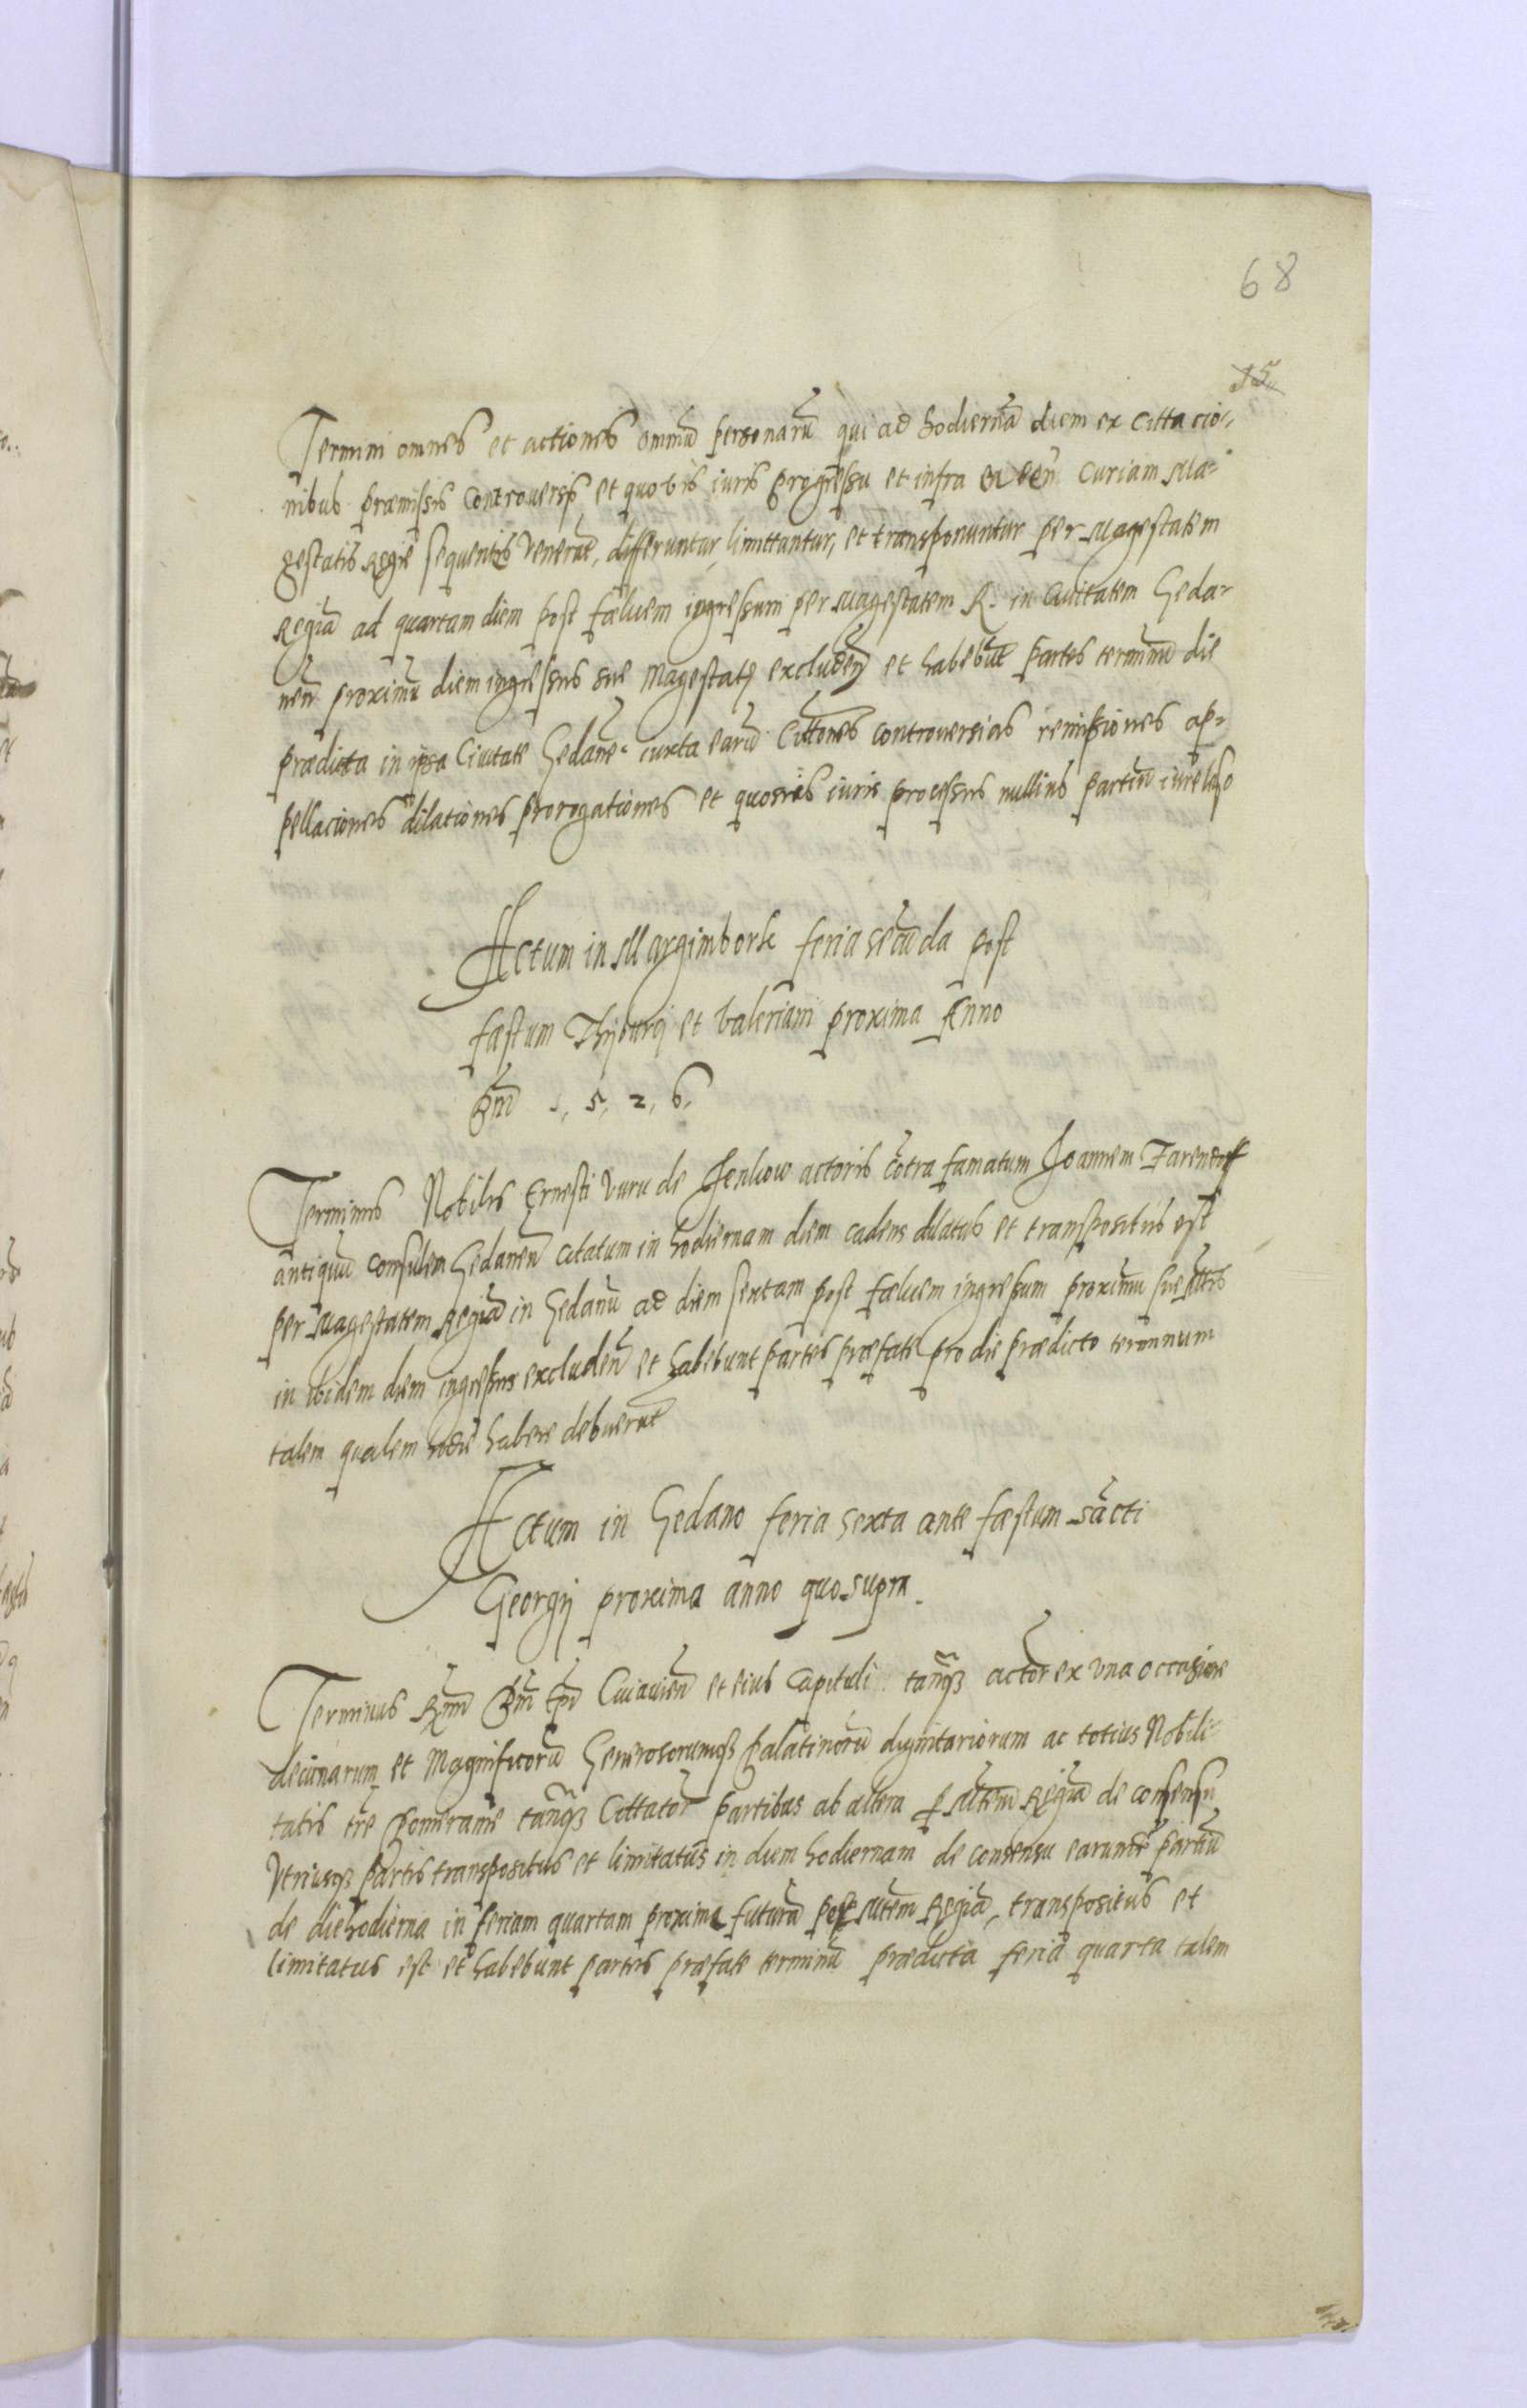 68
15
Termini omnes et actiones omniū personarū qui ad hodiernā diem ex Cittacio-
nibus præmissis Controversijs et quovis iuris progressu et infra eadeñ Curiam Ma-
gestatis Regie sequentes venerūt, differuntur, limittantur, et transponuntur per Magestatem
Regiā ad quartam diem post fælicem ingressum per Magestatem R. in Civitatem Geda-
neñ proximū diem ingressus sue Magestatis excludeñ et habebūt partes terminū die
prædicta in ipsa Civitate Gedaneñ iuxta earū Cittōnes controversias remissiones ap-
pellaciones dilationes prorogationes et quosvis iuris processus nullius partiū iure leso
Actum in Margimbork feria secūda post
fæstum Thijburcij et Valeriani proxima Anno
Dñi 1, 5, 2, 6,
Terminus Nobilis Ernesti de Jenkow actoris cōtra famatum Joannem Farendorff
antiquū consulem Gedaneñ citatum in hodiernam diem cadens dilatus et transpositus est
per Magestatem Regiā in Gedanū ad diem sextam post fælicem ingressum proximū sue Mtis
in ibidem diem ingressus excludeñ et habebunt partes præfate pro die prædicto terminum
talem qualem hodie habere debuerūt
Actum in Gedano feria sexta ante fæstum sācti
Georgij proxima anno quo supra.
Terminus Rmi Dñi Epi Cuiavieñ et eius Capituli tanq̃ȝ actor ex una occasione
decimarum et Magnificorū Generosorumqȝ Palatinorū dignitariorum ac totius Nobili-
tatis tre Pomeranie tanq̃ȝ Cittator partibus ab altera p Mtem Regiā de consensu
Utriusqȝ partis transpositus et limitatus in diem hodiernam de consensu earundē partiū
de die hodierna in feriam quartam proxime futurā per Mtem Regiā, transpositus et
limitatus est et habebunt partes præfate terminū prædicta feria quarta talem